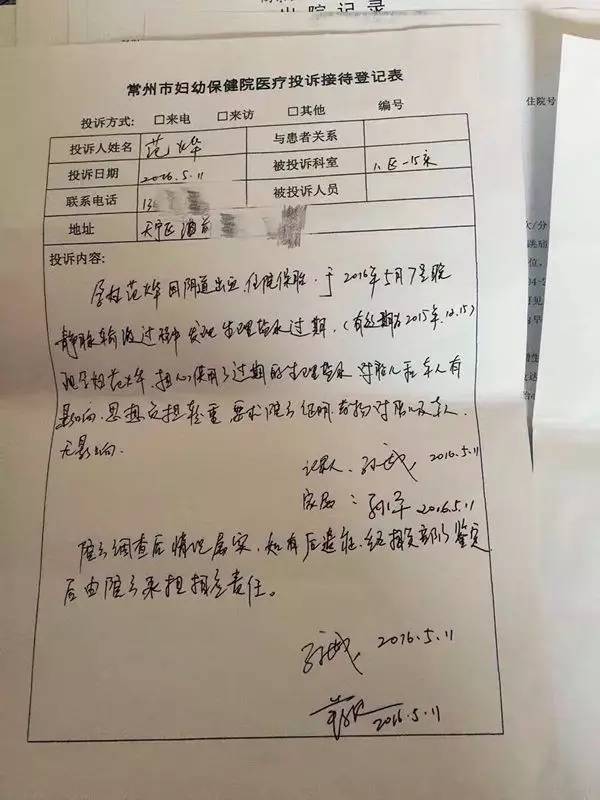 出院记录
常州市妇幼保健院医疗投诉接待登记表
投诉方式: □来电 □来访 □其他 编号
投诉人姓名 范烨 与患者关系
投诉日期 2016.5.11 被投诉科室 1区-15床
联系电话 13 被投诉人员
地址 天宁区
投诉内容:
孕妇范烨因阴道出血,住院保胎,于2016年5月7号晚
静脉输液过程中发现生理盐水过期.(有效期为2015年.12.15)
现孕妇范烨,担心使用了过期的生理盐水对胎儿和本人有
影响,思想负担较重 要求院方证明药物对胎儿及本人
无影响.
记录人: 2016.5.11
家属: 2016.5.11
院方调查后情况属实,如有后遗症,经相关部门鉴定
后由院方承担相应责任。
2016.5.11
2016.5.11
住院号